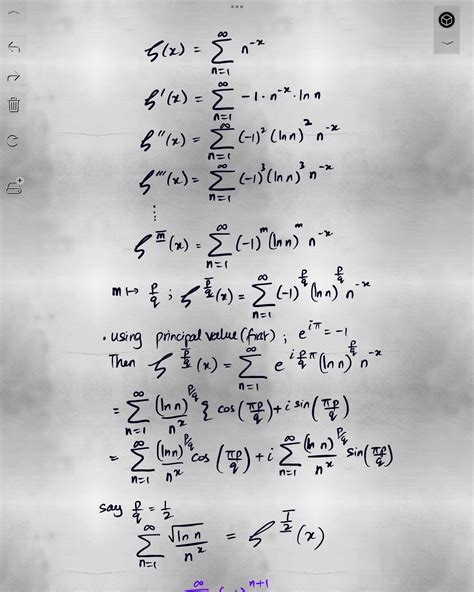 ζ(x) = ∑_{n=1}^{∞} n^{-x}
ζ'(x) = ∑_{n=1}^{∞} -1 · n^{-x} · ln n
ζ''(x) = ∑_{n=1}^{∞} (-1)^2 (ln n)^2 n^{-x}
ζ'''(x) = ∑_{n=1}^{∞} (-1)^3 (ln n)^3 n^{-x}
⋮
ζ^{\overline{m}}(x) = ∑_{n=1}^{∞} (-1)^m (ln n)^m n^{-x}
m ↦ p/q ; ζ^{\overline{p/q}}(x) = ∑_{n=1}^{∞} (-1)^{p/q} (ln n)^{p/q} n^{-x}
• using principal value (first) ; e^{iπ} = -1
Then ζ^{\overline{p/q}}(x) = ∑_{n=1}^{∞} e^{i p/q π} (ln n)^{p/q} n^{-x}
= ∑_{n=1}^{∞} (ln n)^{p/q} / n^x { cos (πp/q) + i sin (πp/q)
= ∑_{n=1}^{∞} (ln n)^{p/q} / n^x cos (πp/q) + i ∑_{n=1}^{∞} (ln n)^{p/q} / n^x sin (πp/q)
say p/q = 1/2
∑_{n=1}^{∞} √(ln n) / n^x = ζ^{\overline{1/2}}(x)